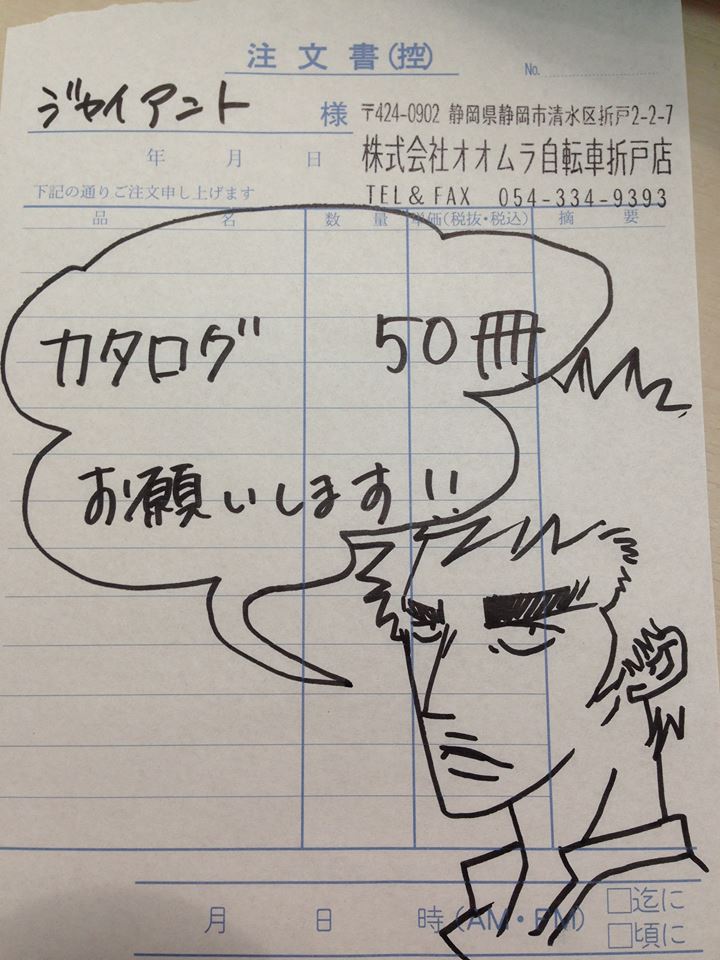 注文書(控)
No.
ジャイアント 様
〒424-0902 静岡県静岡市清水区折戸2-2-7
株式会社オオムラ自転車折戸店
TEL&FAX 054-334-9393
年 月 日
下記の通りご注文申し上げます
品 名 数 量 単価(税抜・税込) 摘 要
カタログ 50冊
お願いします!!
月 日 時(AM・PM)
□迄に
□頃に